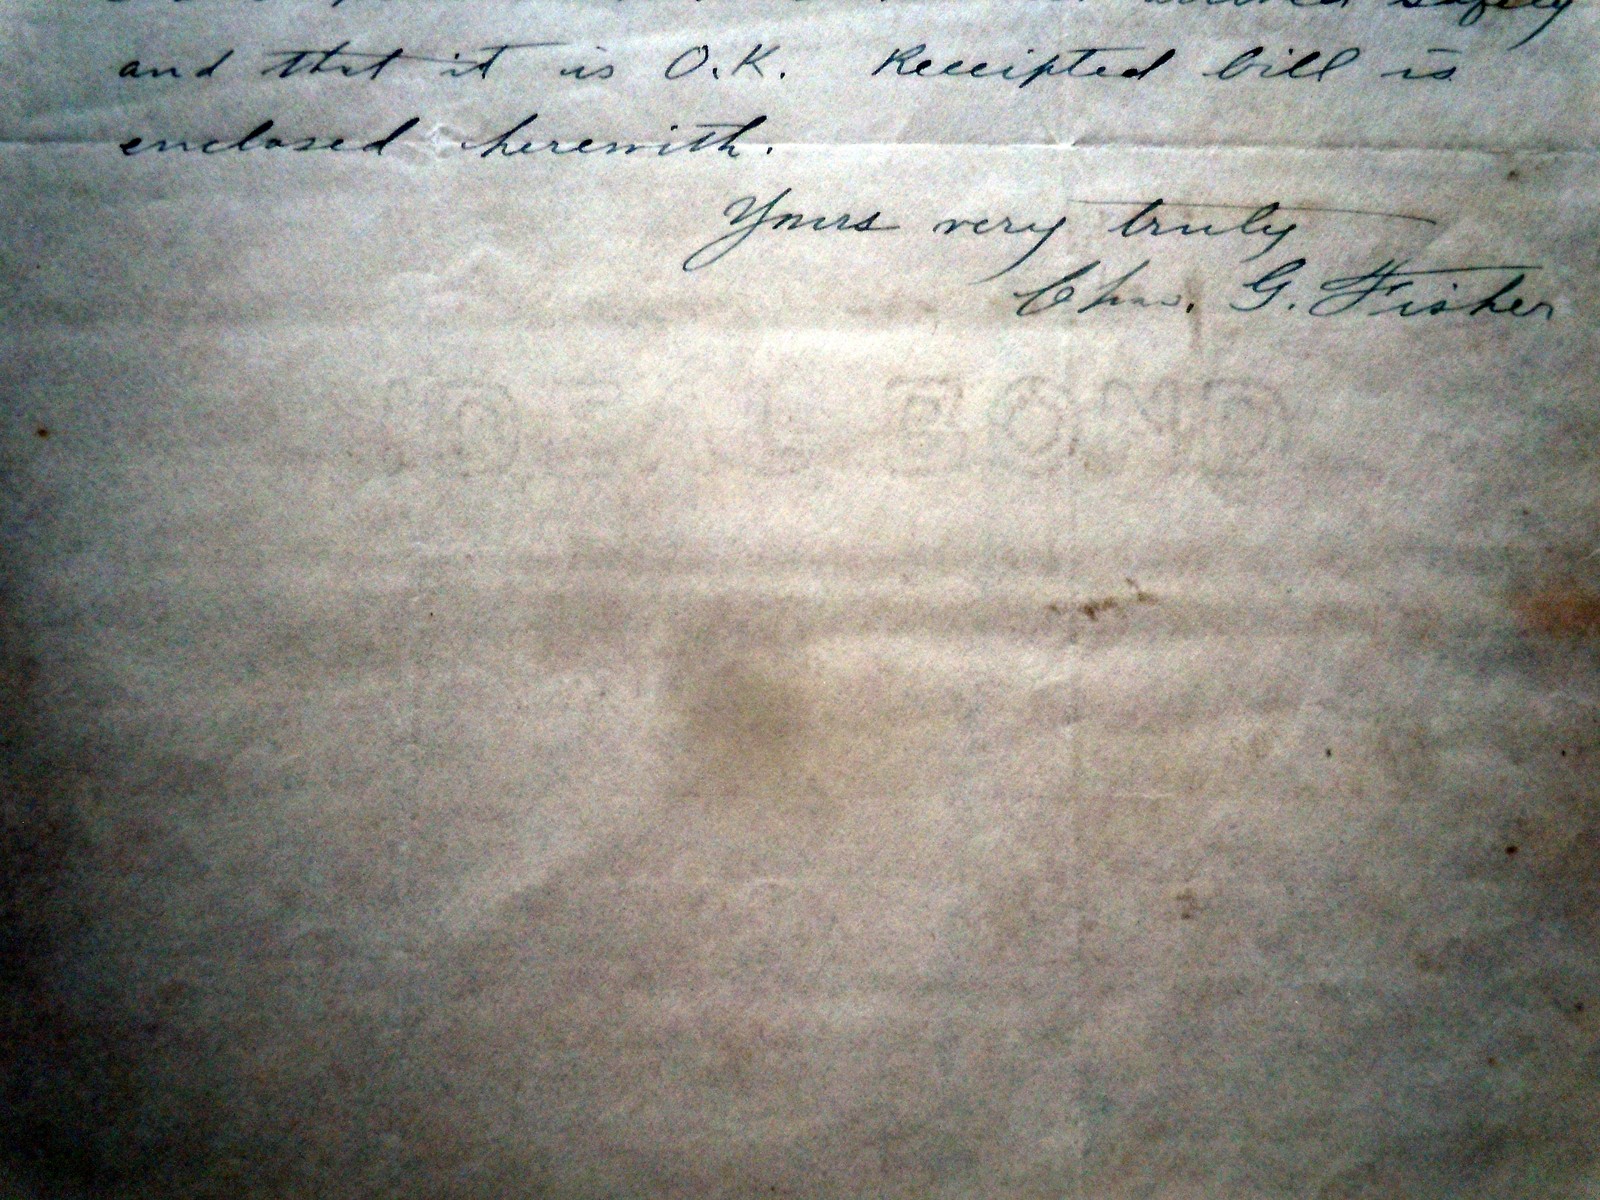 arrived safely
and that it is O.K. Receipted bill is
enclosed herewith.
Yours very truly
Chas. G. Fisher